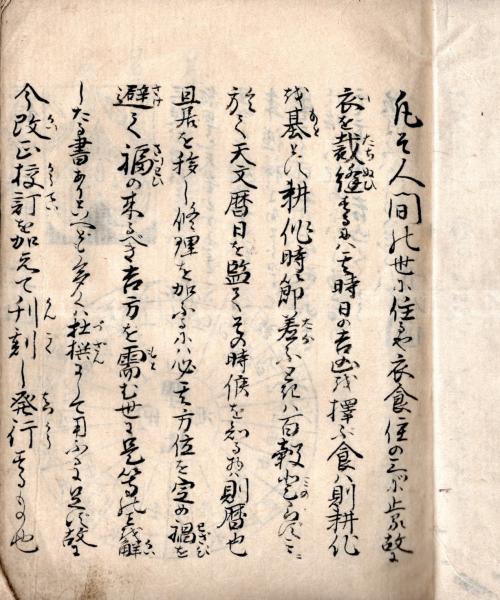 凡そ人間の世に住るや衣食住の三ツに止る故に
衣を裁縫するにハ其時日の吉凶を擇ぶ食ハ則耕作
を基とす耕作時節差ふ時ハ百穀みのらず
於て天文暦日を監てその時候を知るハ則暦也
且居を移し修理を加ふるにハ必其方位を定め禍を
避て福の来るべき吉方を需む世に是等の義を解
したる書ありといへども多くハ杜撰にして用ふるに足らず故に
今改正校訂を加えて刊刻し発行するもの也